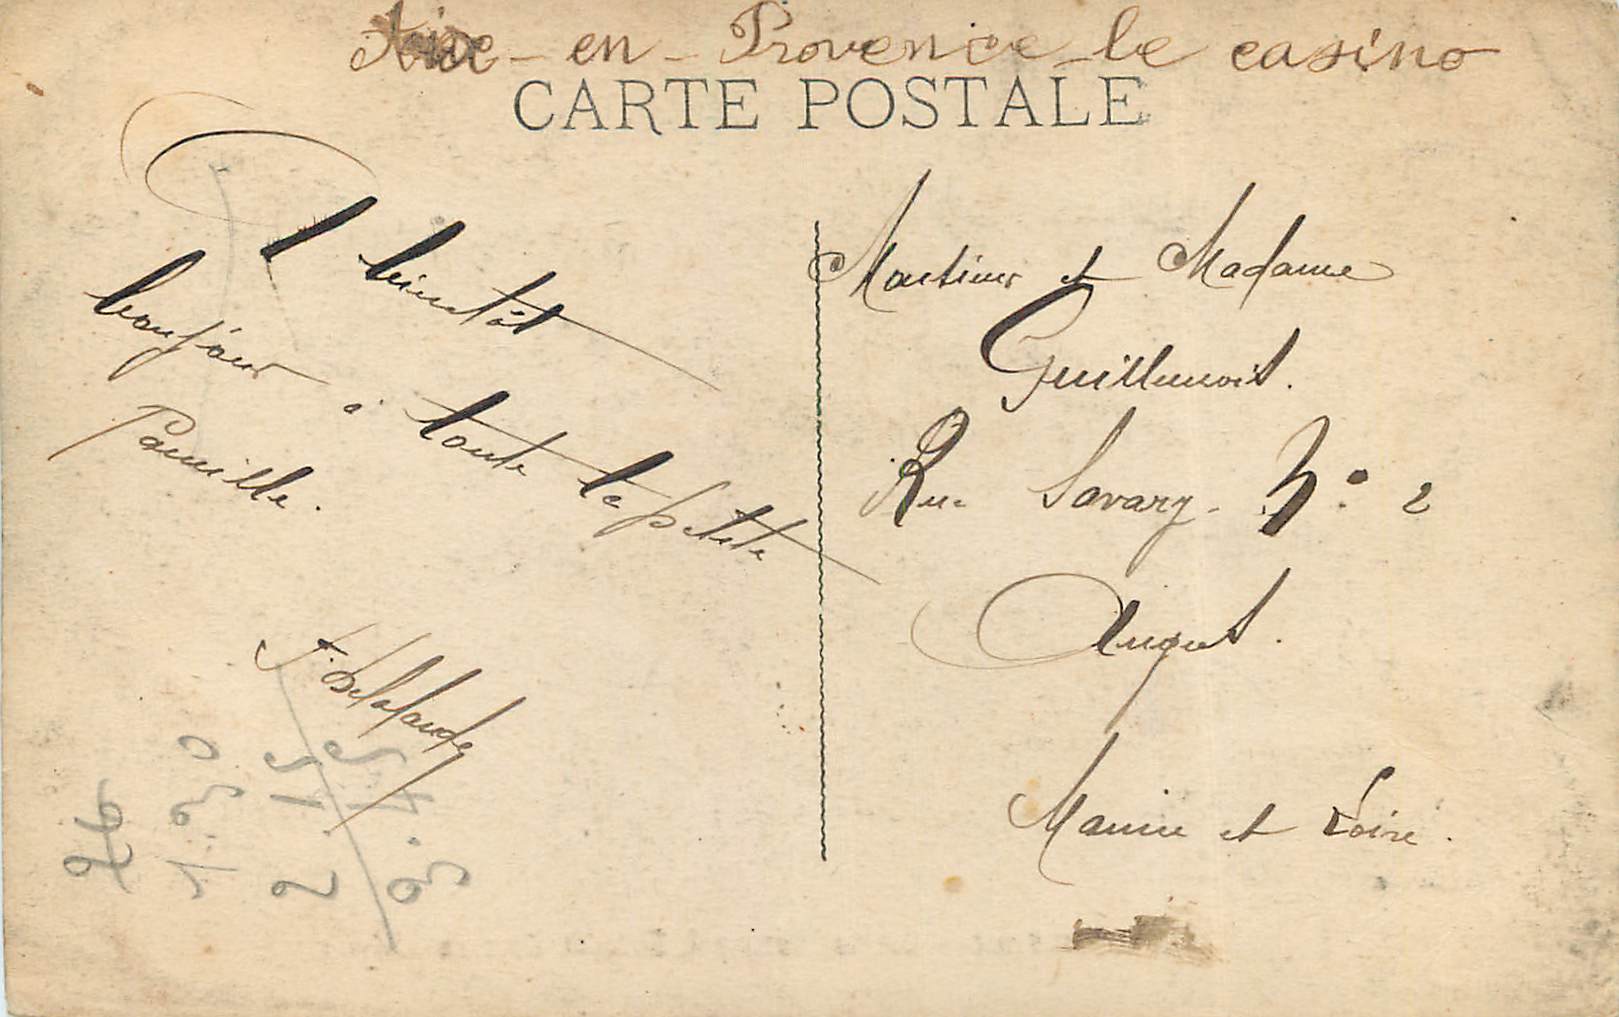 Aixe-en-Provence-le casino
CARTE POSTALE
A bientôt
bonjour
à toute la petite
Famille.
F. Delalande
Monsieur et Madame
Rue Savary. N° 2
Angers.
Maine et Loire.